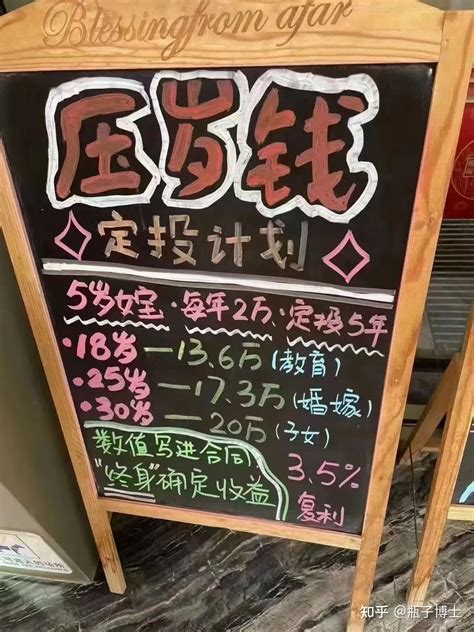 Blessing from afar
压岁钱
定投计划
5岁女宝·每年2万·定投5年
·18岁—13.6万(教育)
·25岁—17.3万(婚嫁)
·30岁—20万(子女)
数值写进合同,
"终身"确定收益
3.5%
复利
知乎 @瓶子博士